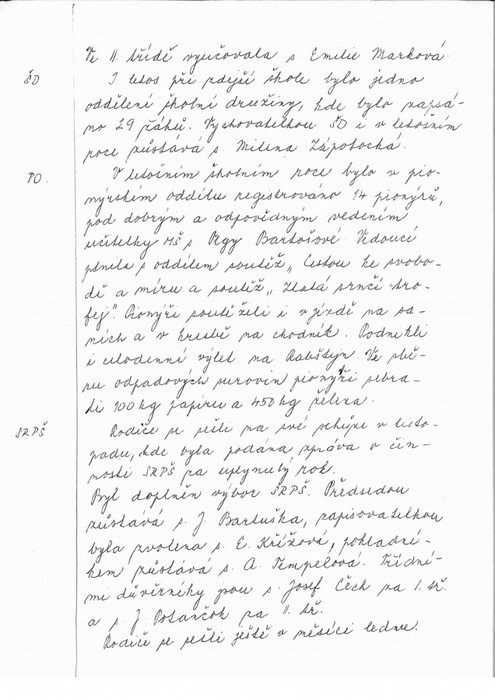 Ve II. třídě vyučovala s. Emilie Marková.
ŠD
I letos při zdejší škole bylo jedno
oddělení školní družiny, kde bylo zapsá-
no 29 žáků. Vychovatelkou ŠD i v letošním
roce zůstává s. Milena Zápotocká.
PO.
V letošním školním roce bylo v pio-
nýrském oddílu registrováno 14 pionýrů,
pod dobrým a odpovědným vedením
učitelky MŠ s. Bartošové. Vedoucí
plnila s oddílem soutěž „Cestou ke svobo-
dě a míru a soutěž „Zlatá srnčí tro-
fej". Pionýři soutěžili i v jízdě na sa-
ních a v kresbě na chodník. Podnikli
i celodenní výlet na Rabštejn. Ve sbě-
ru odpadových surovin pionýři sebra-
li 100 kg papíru a 450 kg železa.
SRPŠ
Rodiče se sešli na své schůze v listo-
padu, kde byla podána zpráva o čin-
nosti SRPŠ za uplynulý rok.
Byl doplněn výbor SRPŠ. Předsedou
zůstává s. J. Bartuška, zapisovatelkou
byla zvolena s. E. Křížová, pokladní-
kem zůstává s. A. Tempelová. Třídní-
mi důvěrníky jsou s. Josef Čech za I. tř.
a s. J. Potančok za II. tř.
Rodiče se sešli ještě v měsíci lednu.